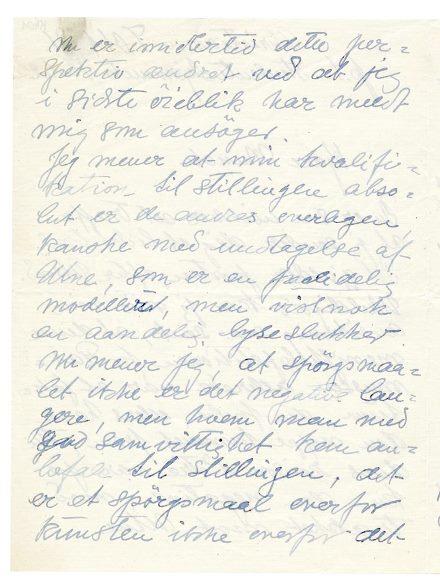 Nu er imidlertid dette per=
spektiv ændret ved at jeg
i sidste öieblik har meldt
mig som ansöger.
Jeg mener at min kvalifi=
kation til stillingen abso=
lut er de andres overlegen,
kanske med undtagelse af
Utne, som er en
modellör, men vistnok
en aandelig lyseslukker.
Nu mener jeg, at spörgsmaa=
let ikke er det negative læn=
gere, men hvem man med
god samvittighet kan an=
befale til stillingen, det
er et spörgsmaal overfor
kunsten ikke overfor det